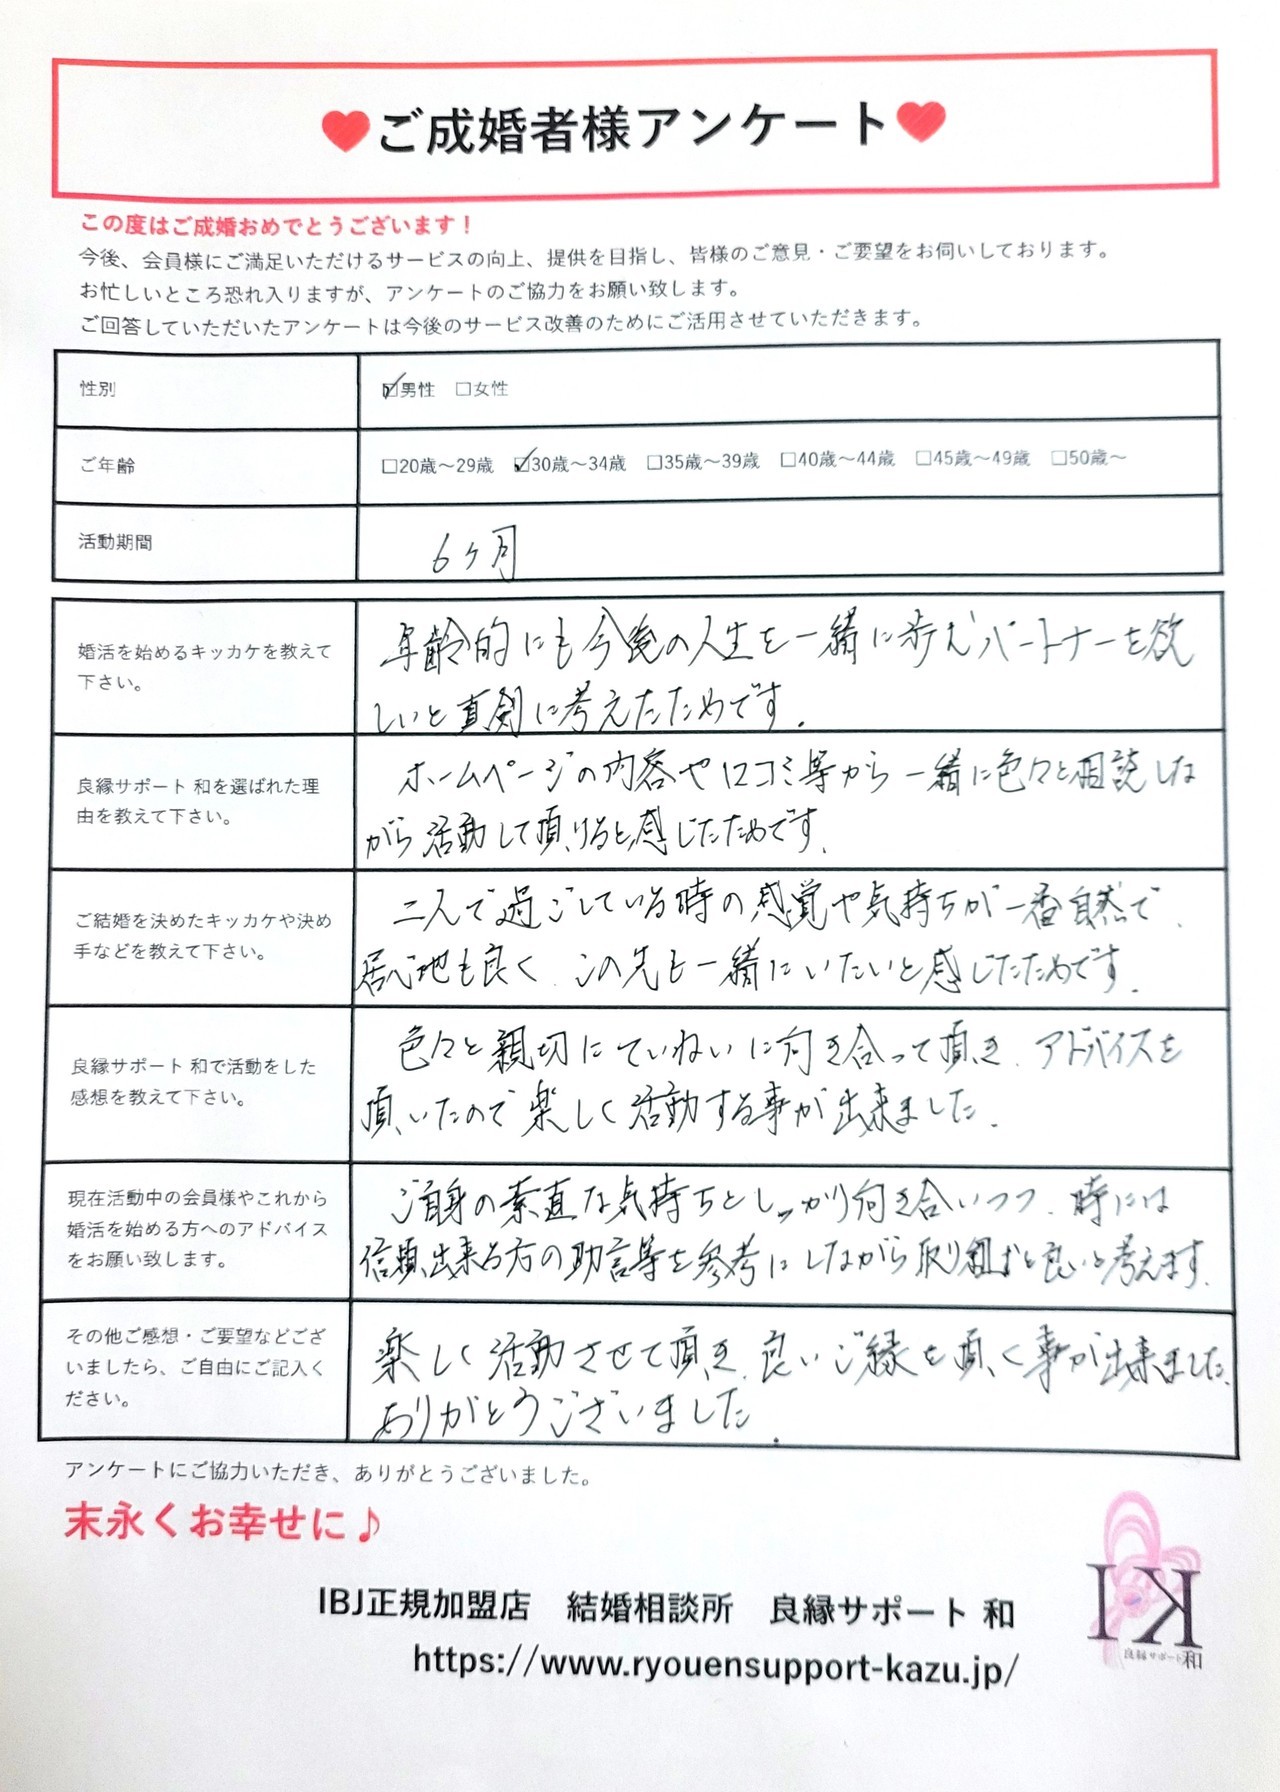 ♥ご成婚者様アンケート♥
この度はご成婚おめでとうございます！
今後、会員様にご満足いただけるサービスの向上、提供を目指し、皆様のご意見・ご要望をお伺いしております。
お忙しいところ恐れ入りますが、アンケートのご協力をお願い致します。
ご回答していただいたアンケートは今後のサービス改善のためにご活用させていただきます。
性別
☑男性 □女性
ご年齢
□20歳～29歳 ☑30歳～34歳 □35歳～39歳 □40歳～44歳 □45歳～49歳 □50歳～
活動期間
6ヶ月
婚活を始めるキッカケを教えて
下さい。
年齢的にも今後の人生を一緒に歩むパートナーを欲
しいと真剣に考えたためです.
良縁サポート 和を選ばれた理
由を教えて下さい。
ホームページの内容や口コミ等から一緒に色々と相談しな
がら活動して頂けると感じたためです.
ご結婚を決めたキッカケや決め
手などを教えて下さい。
二人で過ごしている時の感覚や気持ちが一番自然で、
居心地も良く、この先も一緒にいたいと感じたためです.
良縁サポート 和で活動をした
感想を教えて下さい。
色々と親切にていねいに向き合って頂き、アドバイスを
頂いたので楽しく活動する事が出来ました.
現在活動中の会員様やこれから
婚活を始める方へのアドバイス
をお願い致します。
ご自身の素直な気持ちとしっかり向き合いつつ、時には
信頼出来る方の助言等を参考にしながら取り組むと良いと考えます.
その他ご感想・ご要望などござ
いましたら、ご自由にご記入く
ださい。
楽しく活動させて頂き、良いご縁を頂く事が出来ました.
ありがとうございました.
アンケートにご協力いただき、ありがとうございました。
末永くお幸せに♪
IBJ正規加盟店 結婚相談所 良縁サポート 和
https://www.ryouensupport-kazu.jp/
良縁サポート和